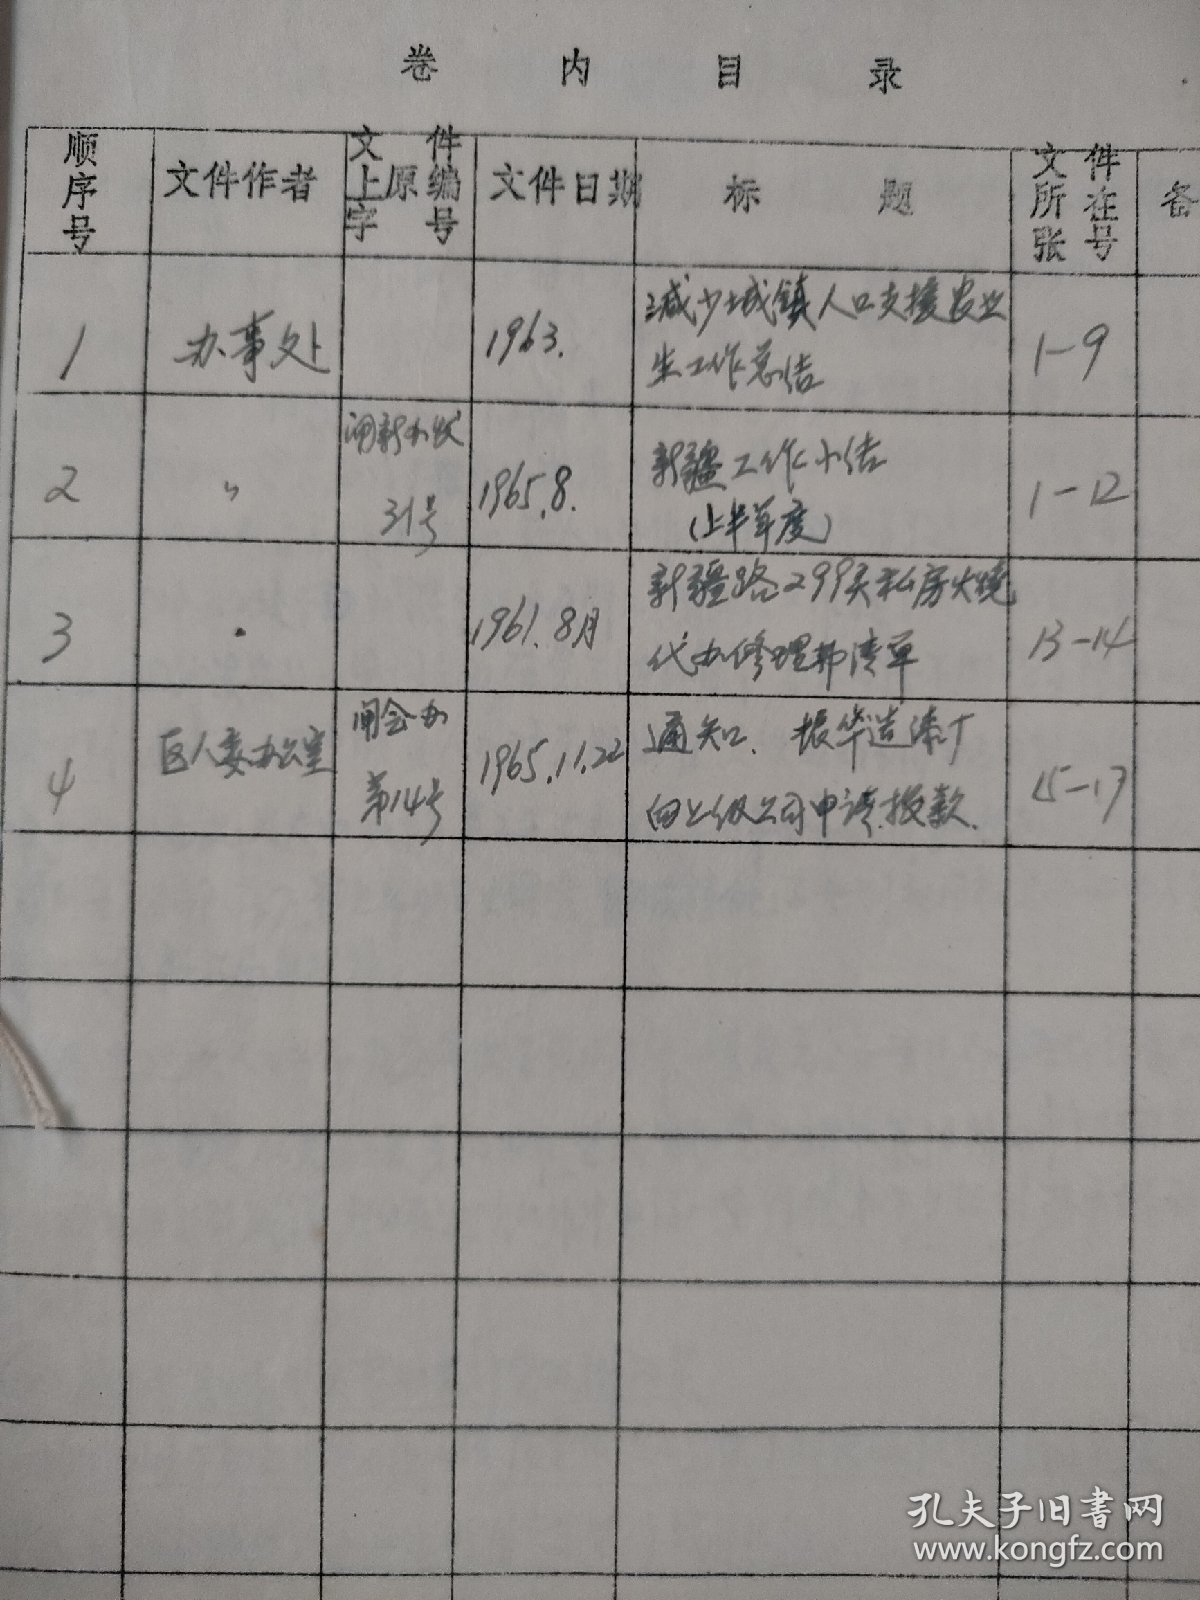 卷内目录
顺序号 文件作者 文件上原编字号 文件日期 标题 文件所在张号 备
1 办事处 1963. 减少城镇人口支援农业 1-9
生工作总结
2 〃 闸新办收 1965.8. 新疆工作小结 1-12
31号 (上半年度)
3 〃 1961.8月 新疆路299弄私房火烧 13-14
代办修理清单
4 区人委办公室 闸会办 1965.11.22 通知、振华造漆厂 15-17
第14号 向上级公司申请拨款.
孔夫子旧书网
www.kongfz.com